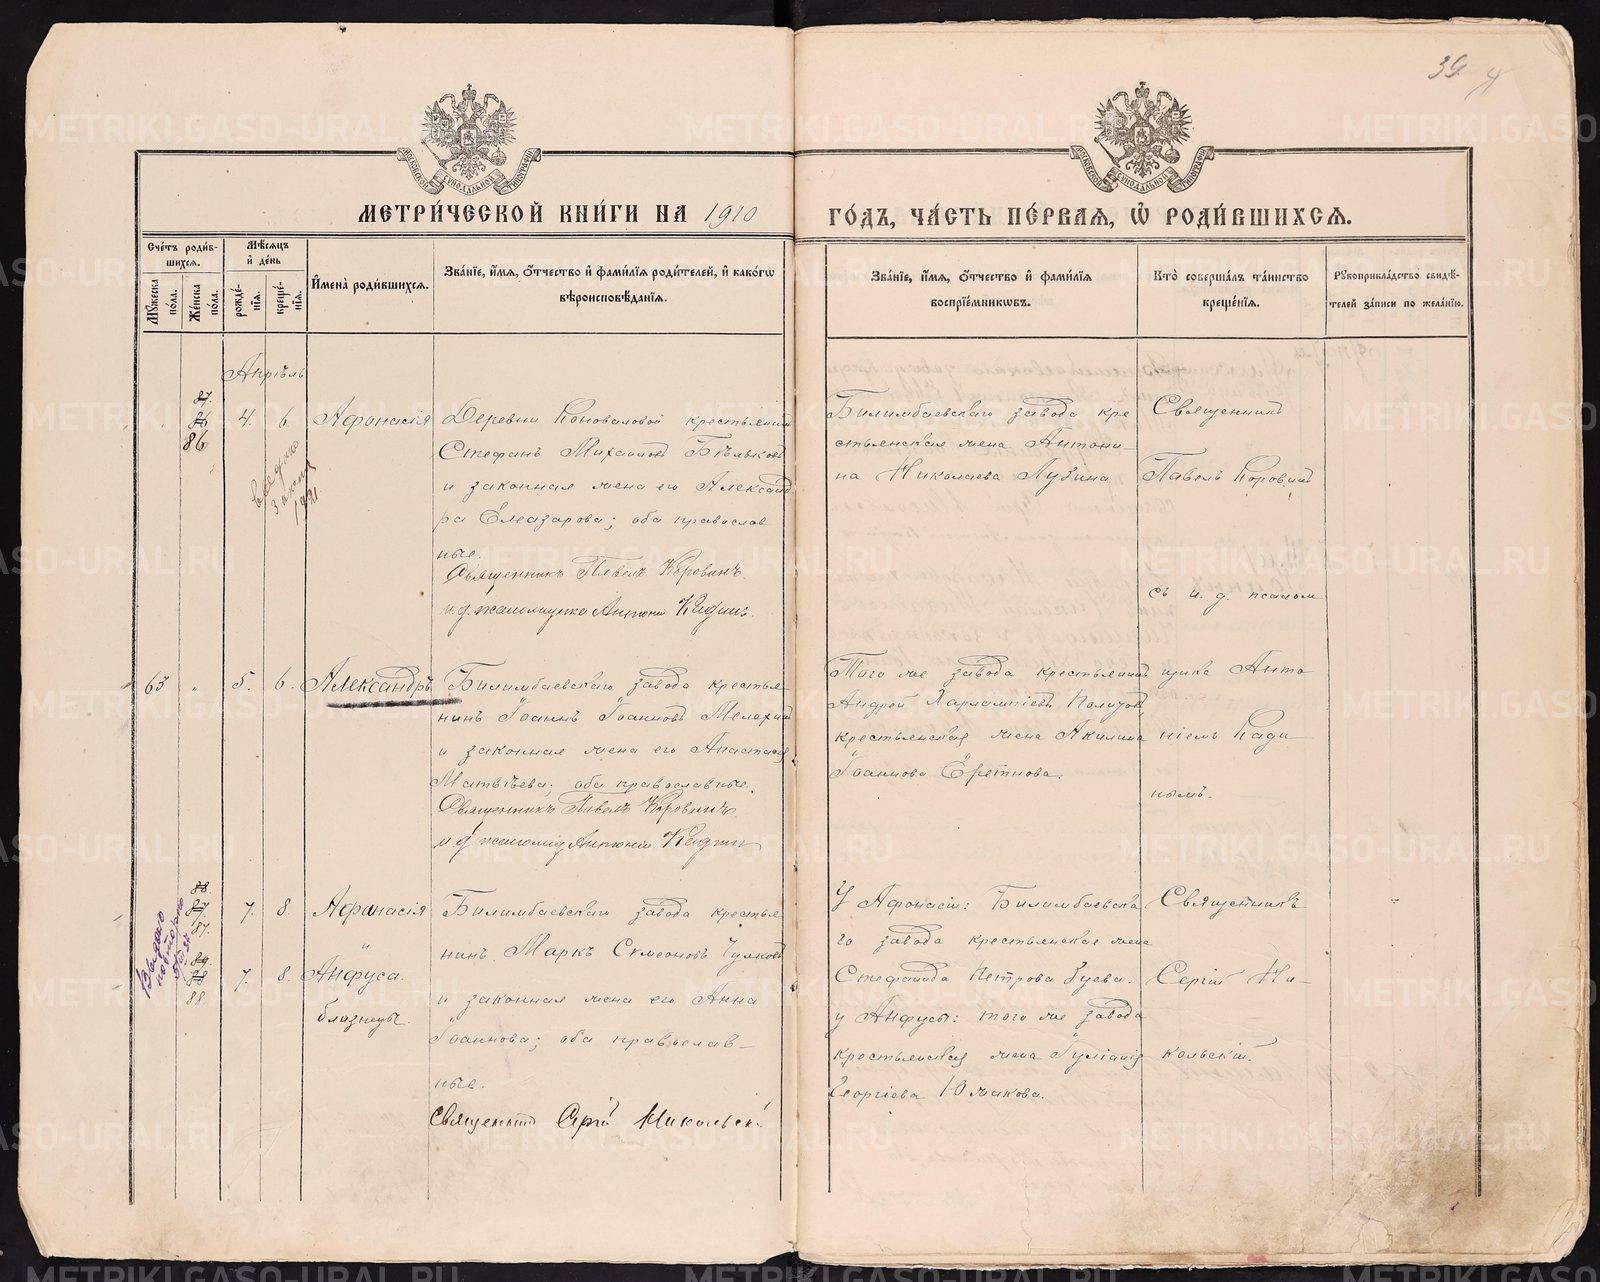 39
МОСКОВСКОЙ СѴНОДАЛЬНОЙ ТИПОГРАФІИ
МОСКОВСКОЙ СѴНОДАЛЬНОЙ ТИПОГРАФІИ
МЕТРИ́ЧЕСКОЙ КНИ́ГИ НА 1910
ГО́ДЪ, ЧА́СТЬ ПЕ́РВАЯ, Ѡ РОДИ́ВШИХСЯ.
Сче́тъ роди́в-
шихся.
Мꙋ́жеска
по́ла.
Же́нска
по́ла.
Мѣ́сяцъ
и де́нь
рожде́-
нїя.
креще́-
нїя.
Имена̀ роди́вшихся.
Зва́нїе, и́мя, о́тчество и фами́лїя роди́телей, и како́гѡ
вѣроисповѣ́данїя.
Зва́нїе, и́мя, о́тчество и фами́лїя
воспрїе́мникѡвъ.
Кто̀ соверша́лъ та́инство
креще́нїя.
Рꙋкоприкла́дство свидѣ́-
телей за́писи по жела́нїю.
Апрѣль
87
86
86
4. 6. Афонасія
Деревни Коноваловой крестьянинъ
Стефанъ Михаиловъ Бѣльковъ
и законная жена его Александ
ра Елеазарова; оба православ
ные.
Священникъ Павелъ Коровинъ.
и. д. псаломщика Антоній Кадинъ.
Билимбаевскаго завода кре
стьянская жена Антони
на Николаева Лузина
Священникъ
Павелъ Коровинъ
съ и. д. псалом
1921
63 " 5. 6. Александръ.
Билимбаевскаго завода крестья
нинъ Іоаннъ Іоанновъ Мелехинъ
и законная жена его Анастасія
Матвѣева; оба православные.
Священникъ Павелъ Коровинъ
и д. псаломщ Антоній Кадинъ
Того же завода крестьянинъ
Андрей Харлампіевъ
крестьянская жена Акилина
Іоаннова
щика Анто
ніемъ Кади
нымъ.
88
87.
87.
7. 8. Афанасія
"
89
88
88
7. 8. Анфуса.
близнецы.
Выдано
повторно
Билимбаевскаго завода крестья
нинъ Маркъ Симеоновъ Чулковъ
и законная жена его Анна
Іоаннова; оба православ-
ные.
Священникъ Сергій Никольскі
У Афонасіи: Билимбаевска
го завода крестьянская жена
Стефанида Петрова Гуева.
у Анфусы: того же завода
крестьянская жена Іуліанія
Георгіева Южакова.
Священникъ
Сергій Ни-
кольскій.